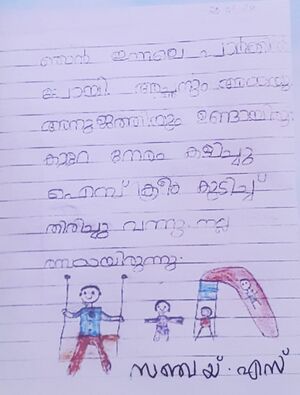 ഞാൻ ഇന്നലെ പാർക്കിൽ
പോയി. അച്ഛനും അമ്മയും
അനുജത്തിയും ഉണ്ടായിരുന്നു.
കുറെ നേരം കളിച്ചു
ഐസ് ക്രീം കുടിച്ച്
തിരിച്ചു വന്നു. നല്ല
രസമായിരുന്നു.
സഞ്ചയ്. എസ്